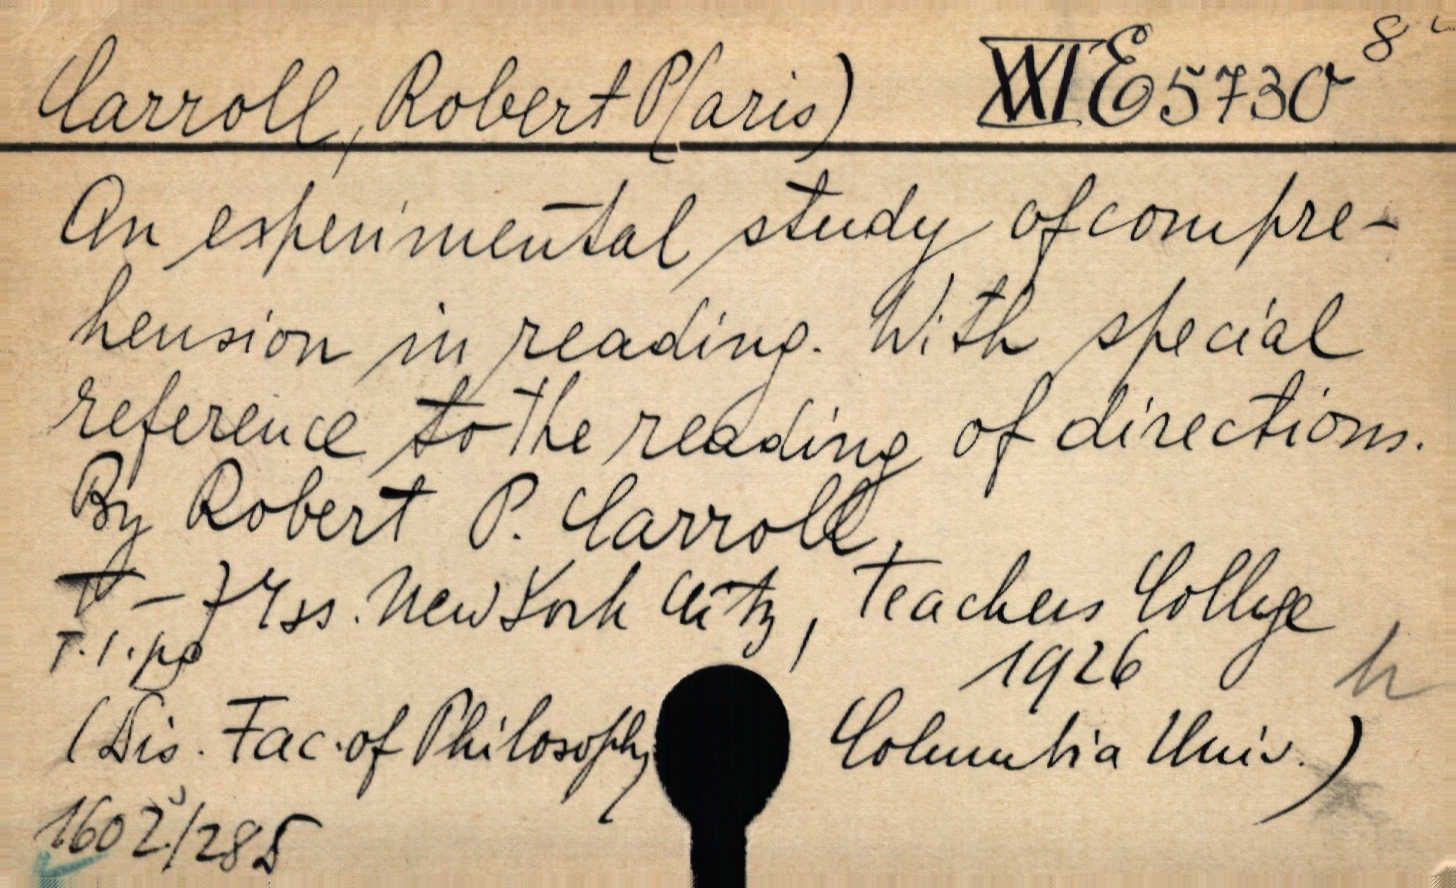 Carroll, Robert P(aris) XXI E 5730 8°
An experimental study of compre-
hension in reading. With special
reference to the reading of directions.
By Robert P. Carroll.
New York City, Teachers College
1926
(Dis. Fac. of Philosophy Columbia Univ.)
h